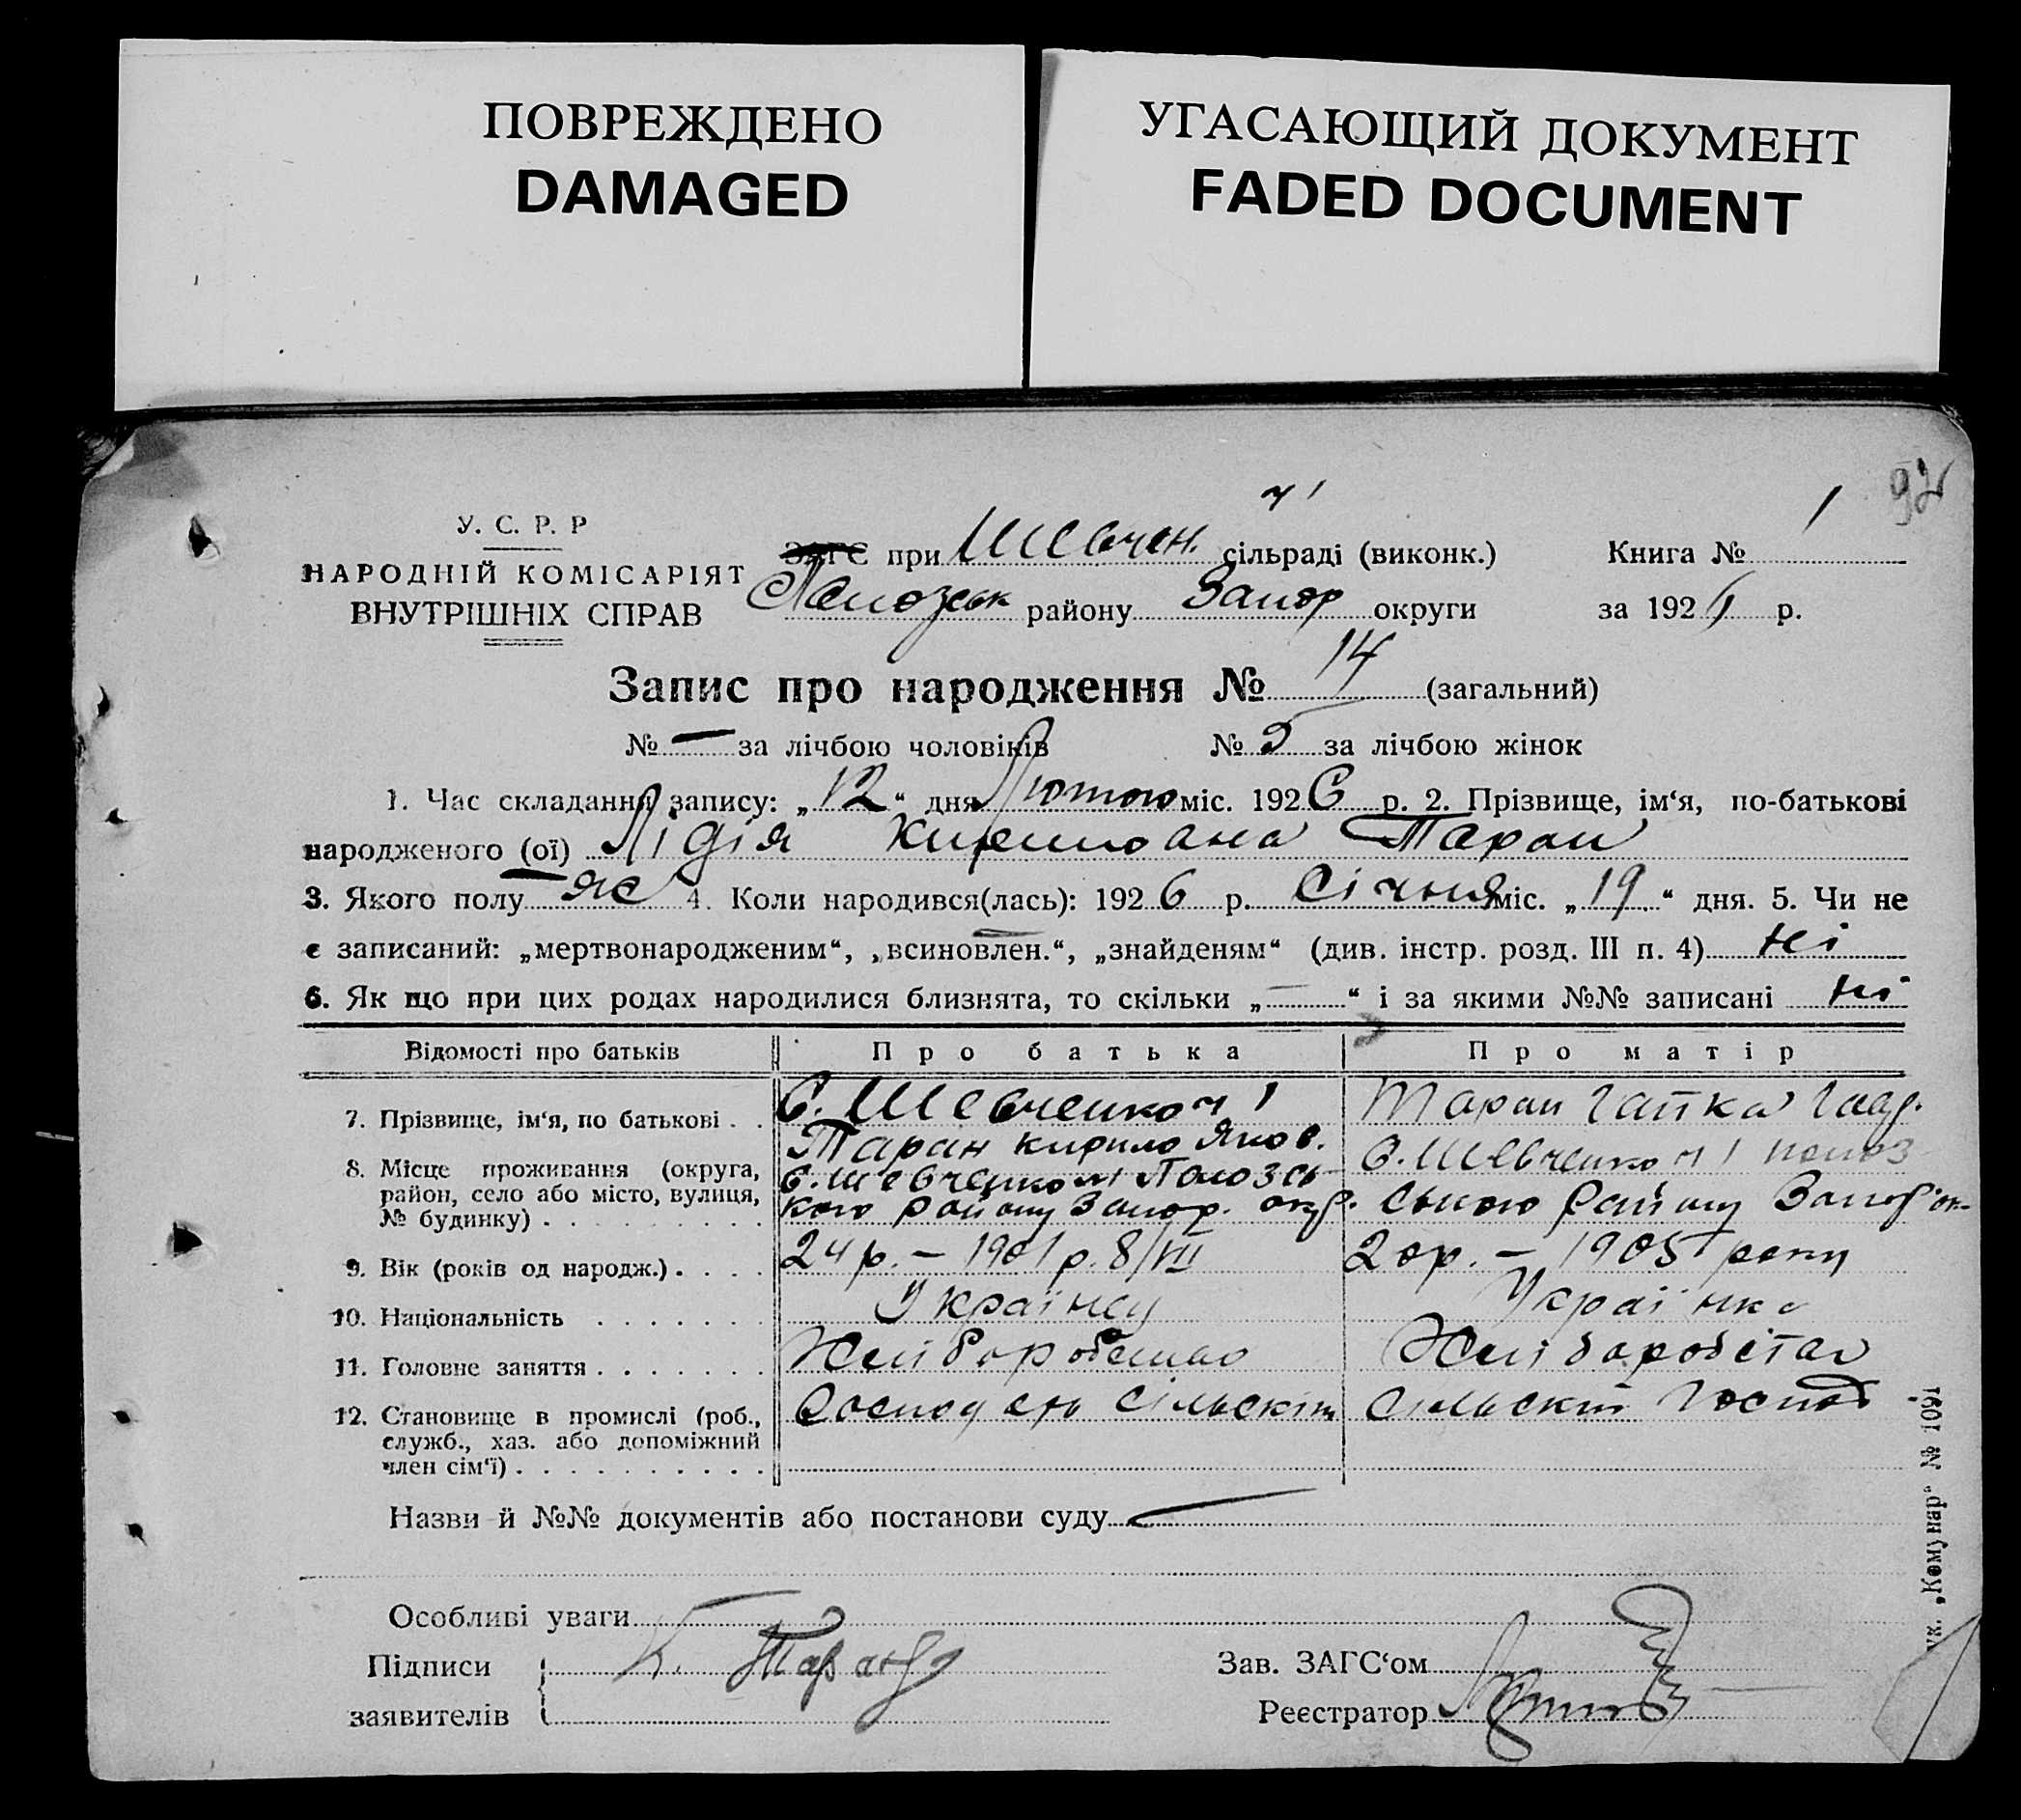 ПОВРЕЖДЕНО
DAMAGED
УГАСАЮЩИЙ ДОКУМЕНТ
FADED DOCUMENT
92
У. С. Р. Р
НАРОДНІЙ КОМІСАРІЯТ
ВНУТРІШНІХ СПРАВ
ЗАГС при Шевчен. ч 1 сільраді (виконк.)
Полозськ району Запор округи
Книга № 1
за 1926 р.
Запис про народження № 14 (загальний)
№ — за лічбою чоловіків № 5 за лічбою жінок
1. Час складання запису: „12“ дня Лютого міс. 1926 р. 2. Прізвище, ім‘я, по-батькові
народженого (ої) Лідія Кирилоана Таран
3. Якого полу ж 4. Коли народився(лась): 1926 р. Січня міс. „19“ дня. 5. Чи не
є записаний: „мертвонародженим“, „всиновлен.“, „знайденям“ (див. інстр. розд. III п. 4) Ні
6. Як що при цих родах народилися близнята, то скільки „—“ і за якими №№ записані Ні
Відомості про батьків Про батька Про матір
7. Прізвище, ім‘я, по батькові . . С. Шевченко ч 1 Таран Кирило Яков. Таран Гапка
8. Місце проживання (округа, район, село або місто, вулиця, № будинку) . С. Шевченко ч 1 Полозсь- кого району Запор. окр. С. Шевченко ч 1 Полоз- ського району Запор. ок-
9. Вік (років од народж.) . . . . 24 р. — 1901 р. 8/VIII 20 р. — 1905 року
10. Національність . . . . . . . Українец Українка
11. Головне заняття . . . . . . . Хліборобство Хліборобства
12. Становище в промислі (роб., служб., хаз. або допоміжний член сім‘ї) . . . . . . . . . . Господарь Сільскім Сільскім Господ
Назви й №№ документів або постанови суду —
Особливі уваги
Підписи
заявителів
К. Таран
Зав. ЗАГС‘ом
Реєстратор
ук. „Комунар“ № 1091